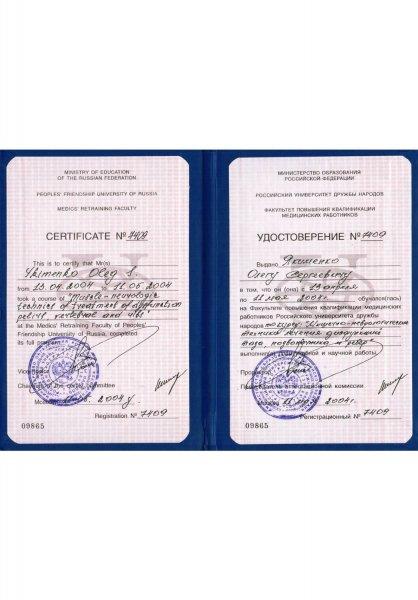 MINISTRY OF EDUCATION
OF THE RUSSIAN FEDERATION
PEOPLES' FRIENDSHIP UNIVERSITY OF RUSSIA
MEDICS' RETRAINING FACULTY
CERTIFICATE № 7409
This is to certify that Mr(s)
Oleg S.
from 13.04.2004 11.05.2004
took a course of "Muscle-neurologic
technics of treatment of
pelvis, vertebral and ribs"
at the Medics' Retraining Faculty of Peoples'
Friendship University of Russia, completed
its full program
Vice-Rector
Committee
2004
Registration № 7409
09865
МИНИСТЕРСТВО ОБРАЗОВАНИЯ
РОССИЙСКОЙ ФЕДЕРАЦИИ
РОССИЙСКИЙ УНИВЕРСИТЕТ ДРУЖБЫ НАРОДОВ
ФАКУЛЬТЕТ ПОВЫШЕНИЯ КВАЛИФИКАЦИИ
МЕДИЦИНСКИХ РАБОТНИКОВ
УДОСТОВЕРЕНИЕ № 7409
Якименко
Выдано
Олегу Сергеевичу
в том, что он (она) с 13 апреля
по 11 мая 2004г. обучался(лась)
на Факультете повышения квалификации медицинских
работников Российского университета дружбы
народов по курсу: "Мышечно-неврологические
техники лечения дисфункций
таза, позвоночника и ребер"
и научной работы.
Проректор
Председатель аттестационной комиссии
Москва 2004г.
Регистрационный № 7409
09865